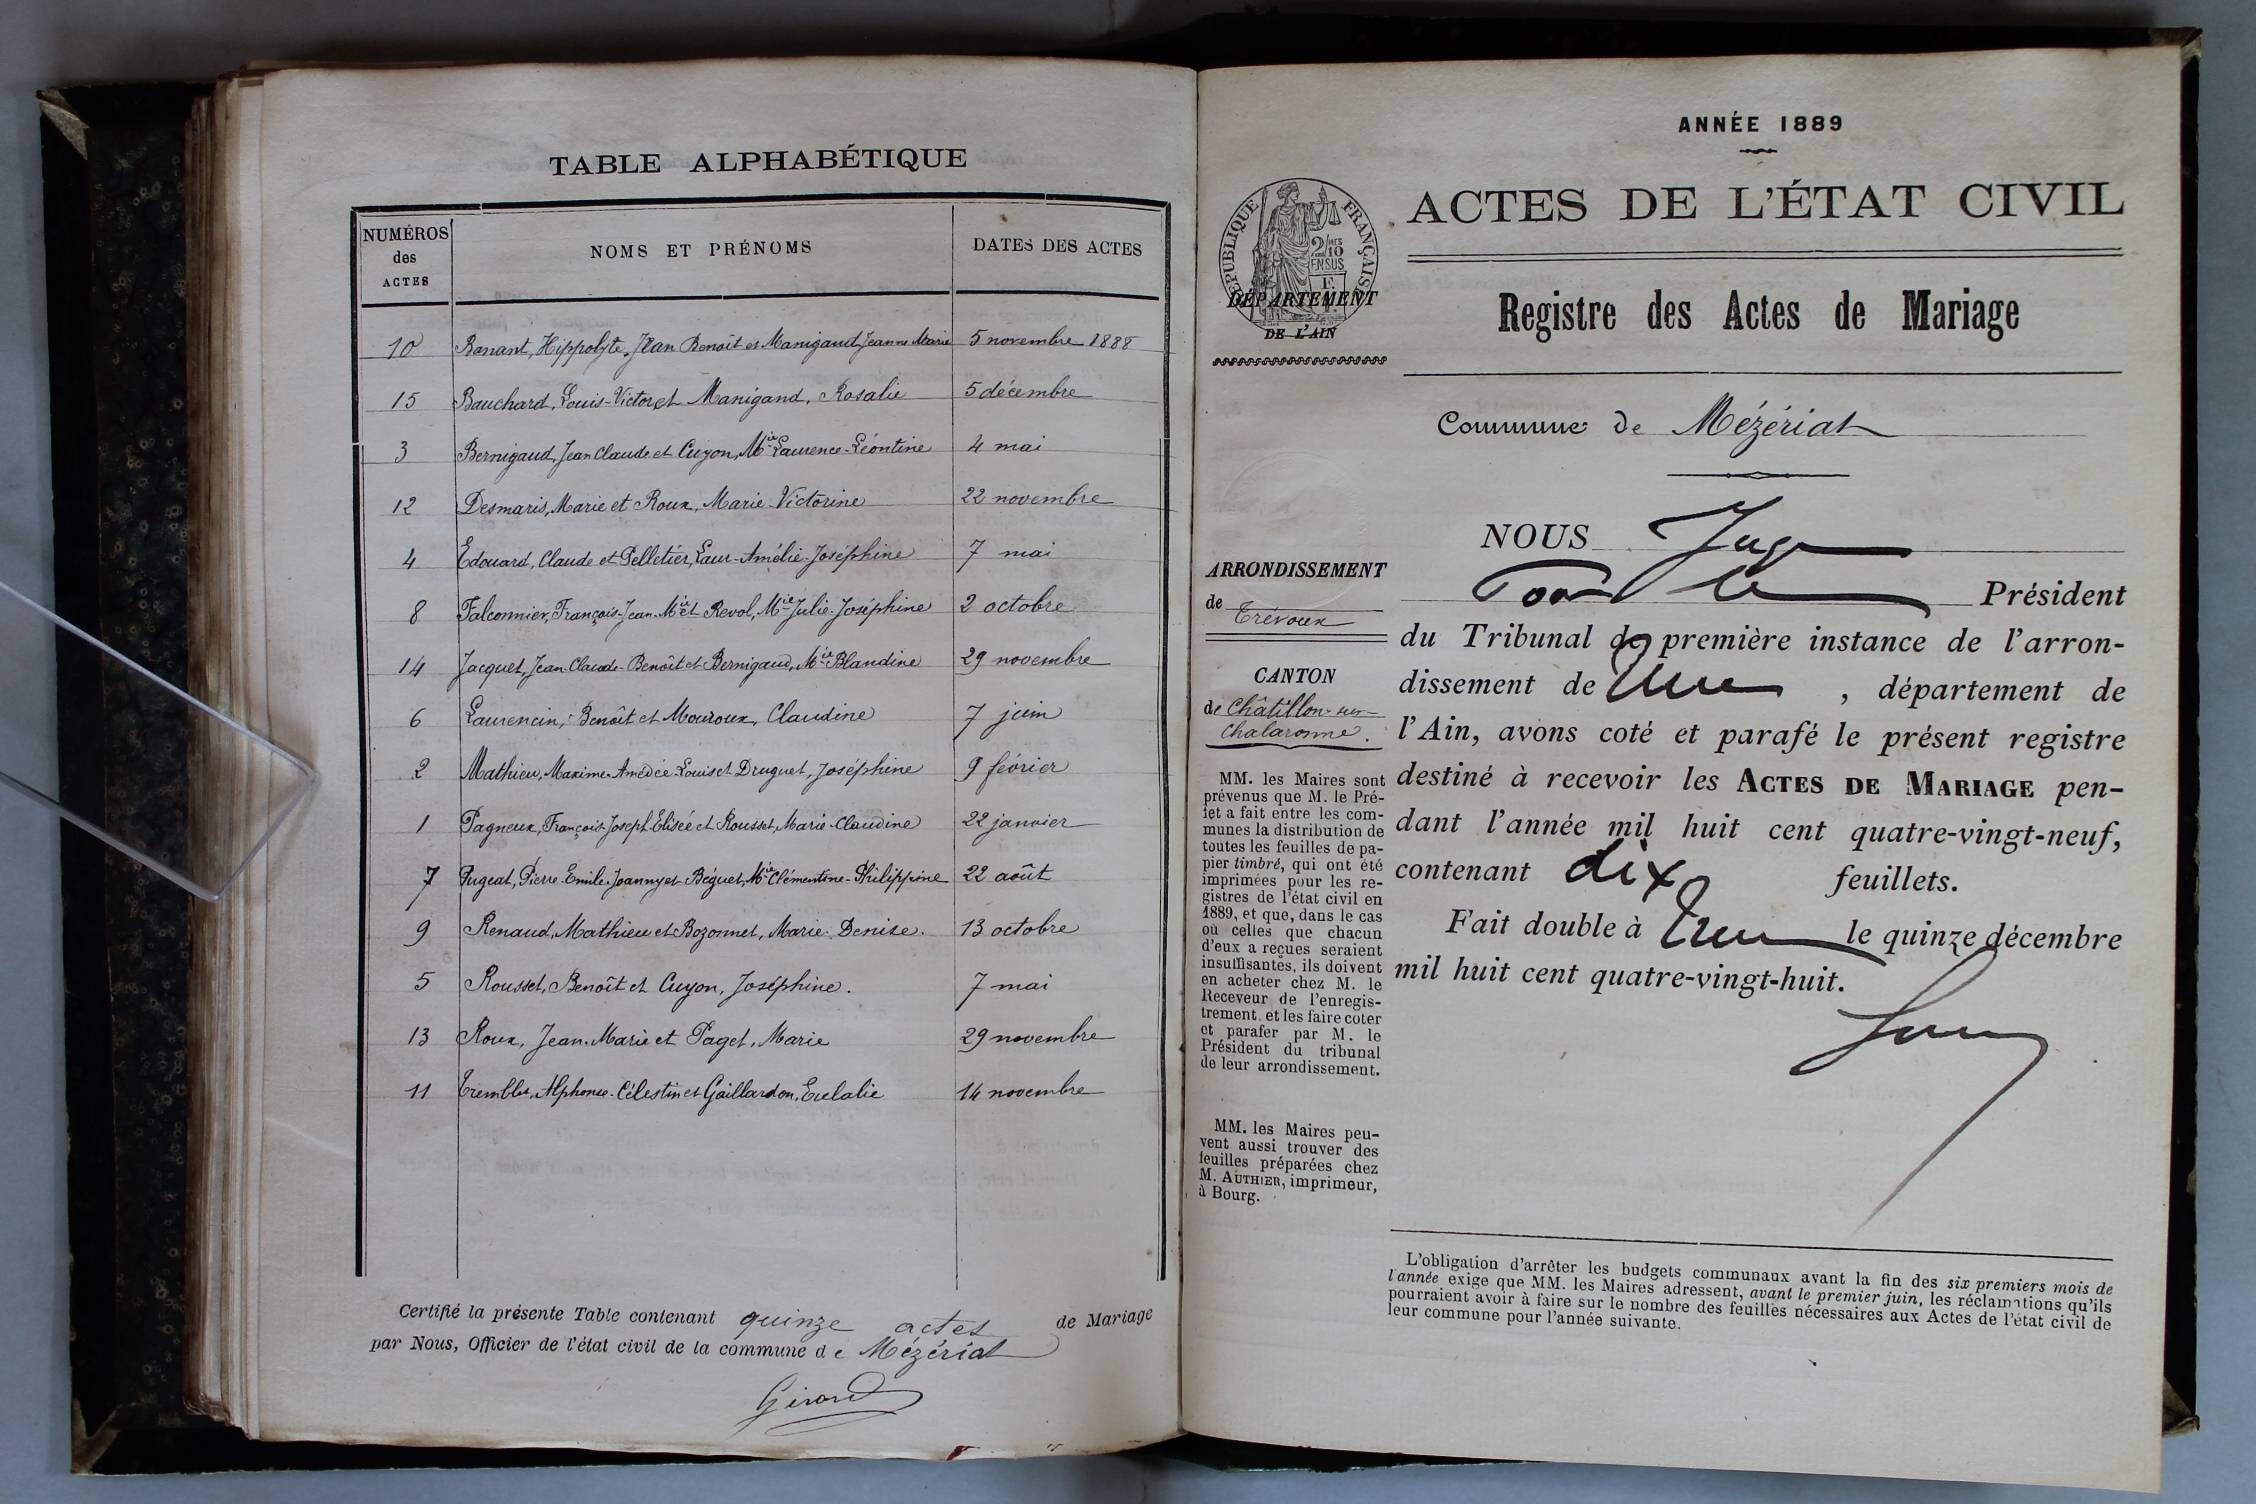 TABLE ALPHABÉTIQUE
NUMÉROS des ACTES
NOMS ET PRÉNOMS
DATES DES ACTES
10 Banant, Hippolyte, Jean Benoît et Manigand Jeanne Marie 5 novembre 1888
15 Bauchard, Louis-Victor et Manigand, Rosalie 5 décembre
3 Bernigaud, Jean Claude et Cuyon, Mie Laurence-Léontine 4 mai
12 Desmaris, Marie et Roux, Marie-Victorine 22 novembre
4 Edouard, Claude et Pelletier, Laur-Amélie-Joséphine 7 mai
8 Falconnier, François-Jean-Mie et Revol, Mie Julie-Joséphine 2 octobre
14 Jacquet, Jean-Claude-Benoît et Bernigaud, Mie Blandine 29 novembre
6 Laurencin, Benoît et Mouroux, Claudine 7 juin
2 Mathieu, Maxime-Amédée Louis et Druguet, Joséphine 9 février
1 Pagneux, François-Joseph Elisée et Rousset, Marie-Claudine 22 janvier
7 Pugeat, Pierre-Emile-Joanny et Béguet, Mie Clémentine-Philippine 22 août
9 Renaud, Mathieu et Bozonnet, Marie-Denise. 13 octobre
5 Rousset, Benoît et Cuyon, Joséphine. 7 mai
13 Roux, Jean-Marie et Paget, Marie 29 novembre
11 Tremblet, Alphonse-Célestin et Gaillardon, Eulalie 14 novembre
Certifié la présente Table contenant quinze actes de Mariage
par Nous, Officier de l'état civil de la commune de Mézériat
Girard
ANNÉE 1889
ACTES DE L'ÉTAT CIVIL
RÉPUBLIQUE FRANÇAISE
2/10
EN SUS
DÉPARTEMENT
DE L'AIN
Registre des Actes de Mariage
Commune de Mézériat
ARRONDISSEMENT
de Trévoux
CANTON
de Châtillon-sur-
Chalaronne.
MM. les Maires sont
prévenus que M. le Pré-
fet a fait entre les com-
munes la distribution de
toutes les feuilles de pa-
pier timbré, qui ont été
imprimées pour les re-
gistres de l'état civil en
1889, et que, dans le cas
où celles que chacun
d'eux a reçues seraient
insuffisantes, ils doivent
en acheter chez M. le
Receveur de l'enregis-
trement, et les faire coter
et parafer par M. le
Président du tribunal
de leur arrondissement.
MM. les Maires peu-
vent aussi trouver des
feuilles préparées chez
M. AUTHIER, imprimeur,
à Bourg.
NOUS Juge
Pour le Président
du Tribunal de première instance de l'arron-
dissement de , département de
l'Ain, avons coté et parafé le présent registre
destiné à recevoir les ACTES DE MARIAGE pen-
dant l'année mil huit cent quatre-vingt-neuf,
contenant dix feuillets.
Fait double à le quinze décembre
mil huit cent quatre-vingt-huit.
L'obligation d'arrêter les budgets communaux avant la fin des six premiers mois de
l'année exige que MM. les Maires adressent, avant le premier juin, les réclamations qu'ils
pourraient avoir à faire sur le nombre des feuilles nécessaires aux Actes de l'état civil de
leur commune pour l'année suivante.